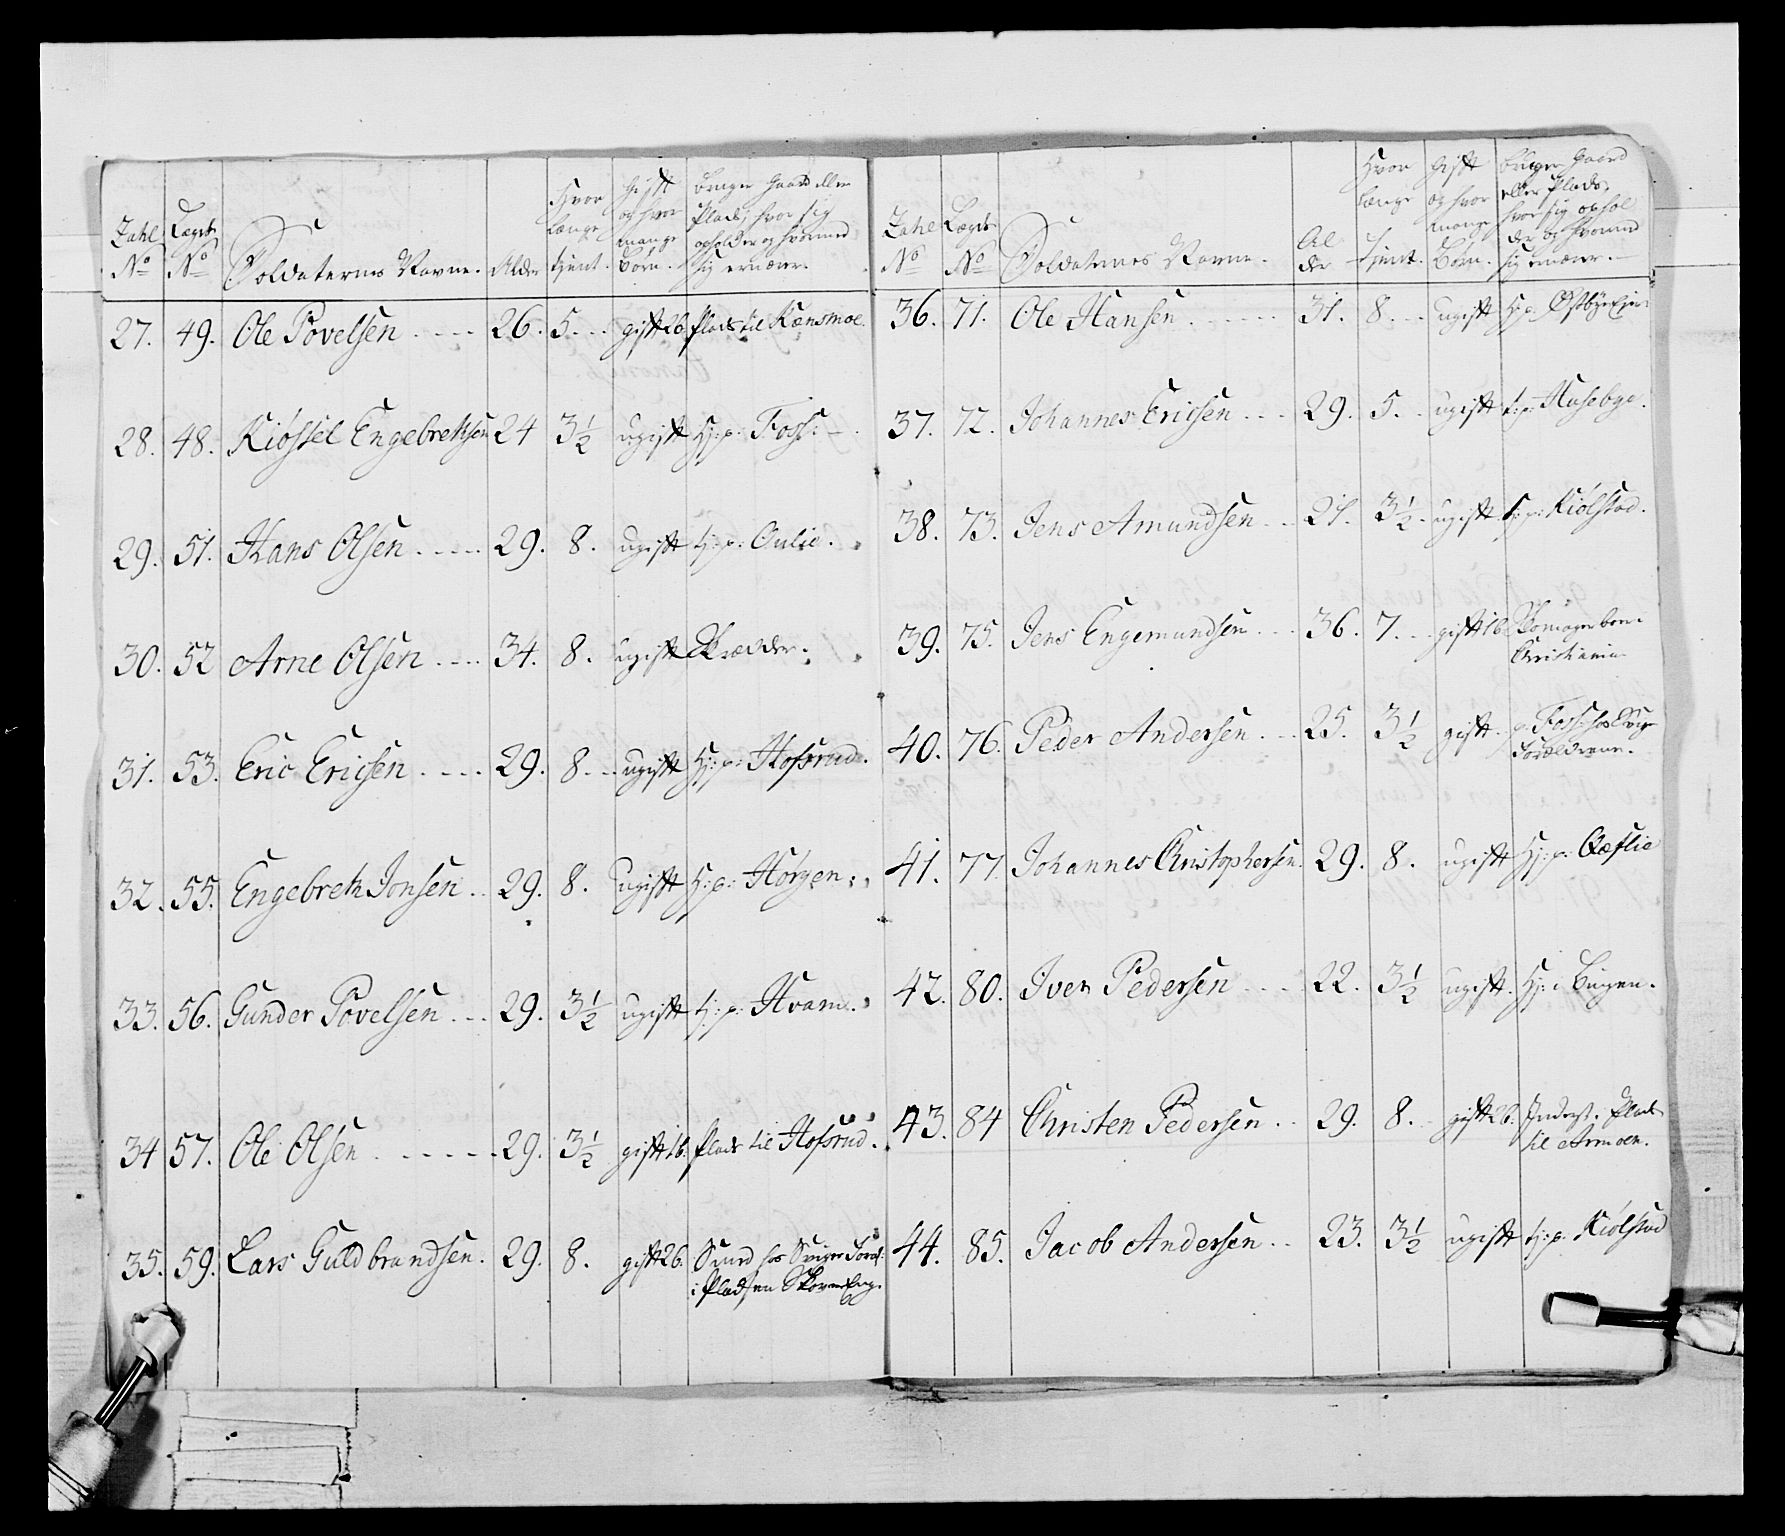 Zahl No | Lægds No | Soldaternes Navne. | Alder | Hvor længe tjent. | Gift og hvor mange Børn. | bruger Gaard eller Plads, hvor sig opholder og hvormed sig ernærer.
27. 49. Ole Povelsen 26. 5. gift 2b. Plads til Kænsmoe.
28. 48. Kiøstel Engebretsen 24 3½ ugift Hj: p: Foss:
29. 51. Hans Olsen 29. 8. ugift Hj: p: Oulie.
30. 52 Arne Olsen 34. 8. ugift Skrædder.
31. 53. Eric Ericsen 29. 8. ugift Hj: p: Hofsrud.
32. 55. Engebreth Jonsen 29. 8. ugift Hj: p: Hørgen.
33. 56. Gunder Povelsen 29. 3½ ugift Hj: p: Hvam.
34 57. Ole Olsen 29. 3½ gift 1b. Plads til Hofsrud.
35. 59. Lars Guldbrandsen. 29. 8. gift 2b. hos Sviger Foræl:
i Pladsen
Zahl No | Lægds No | Soldaternes Navne. | Alder | Hvor længe tjent. | Gift og hvor mange Børn. | bruger Gaard eller Plads, hvor sig opholder og hvormed sig ernærer.
36. 71. Ole Hansen 31. 8. ugift Hj: p:
37. 72. Johannes Ericsen 29. 5. ugift Hj: p: Husebye.
38. 73. Jens Amundsen 21. 3½. ugift Hj: p: Kiølstad.
39. 75. Jens Engemundsen 36. 7. gift 1b. Skomager
Christiania
40. 76. Peder Andersen 25. 3½ gift. p: Foss: hos Sviger
Forældrene.
41. 77. Johannes Christophersen. 29. 8. ugift Hj: p: Ræflie
42. 80. Iver Pedersen 22. 3½ ugift. Hj: i Bingen.
43. 84 Christen Pedersen 29. 8. gift 2b. Inderst. Plads
til Armoen.
44. 85. Jacob Andersen 23. 3½ ugift Hj: p: Kiølstad